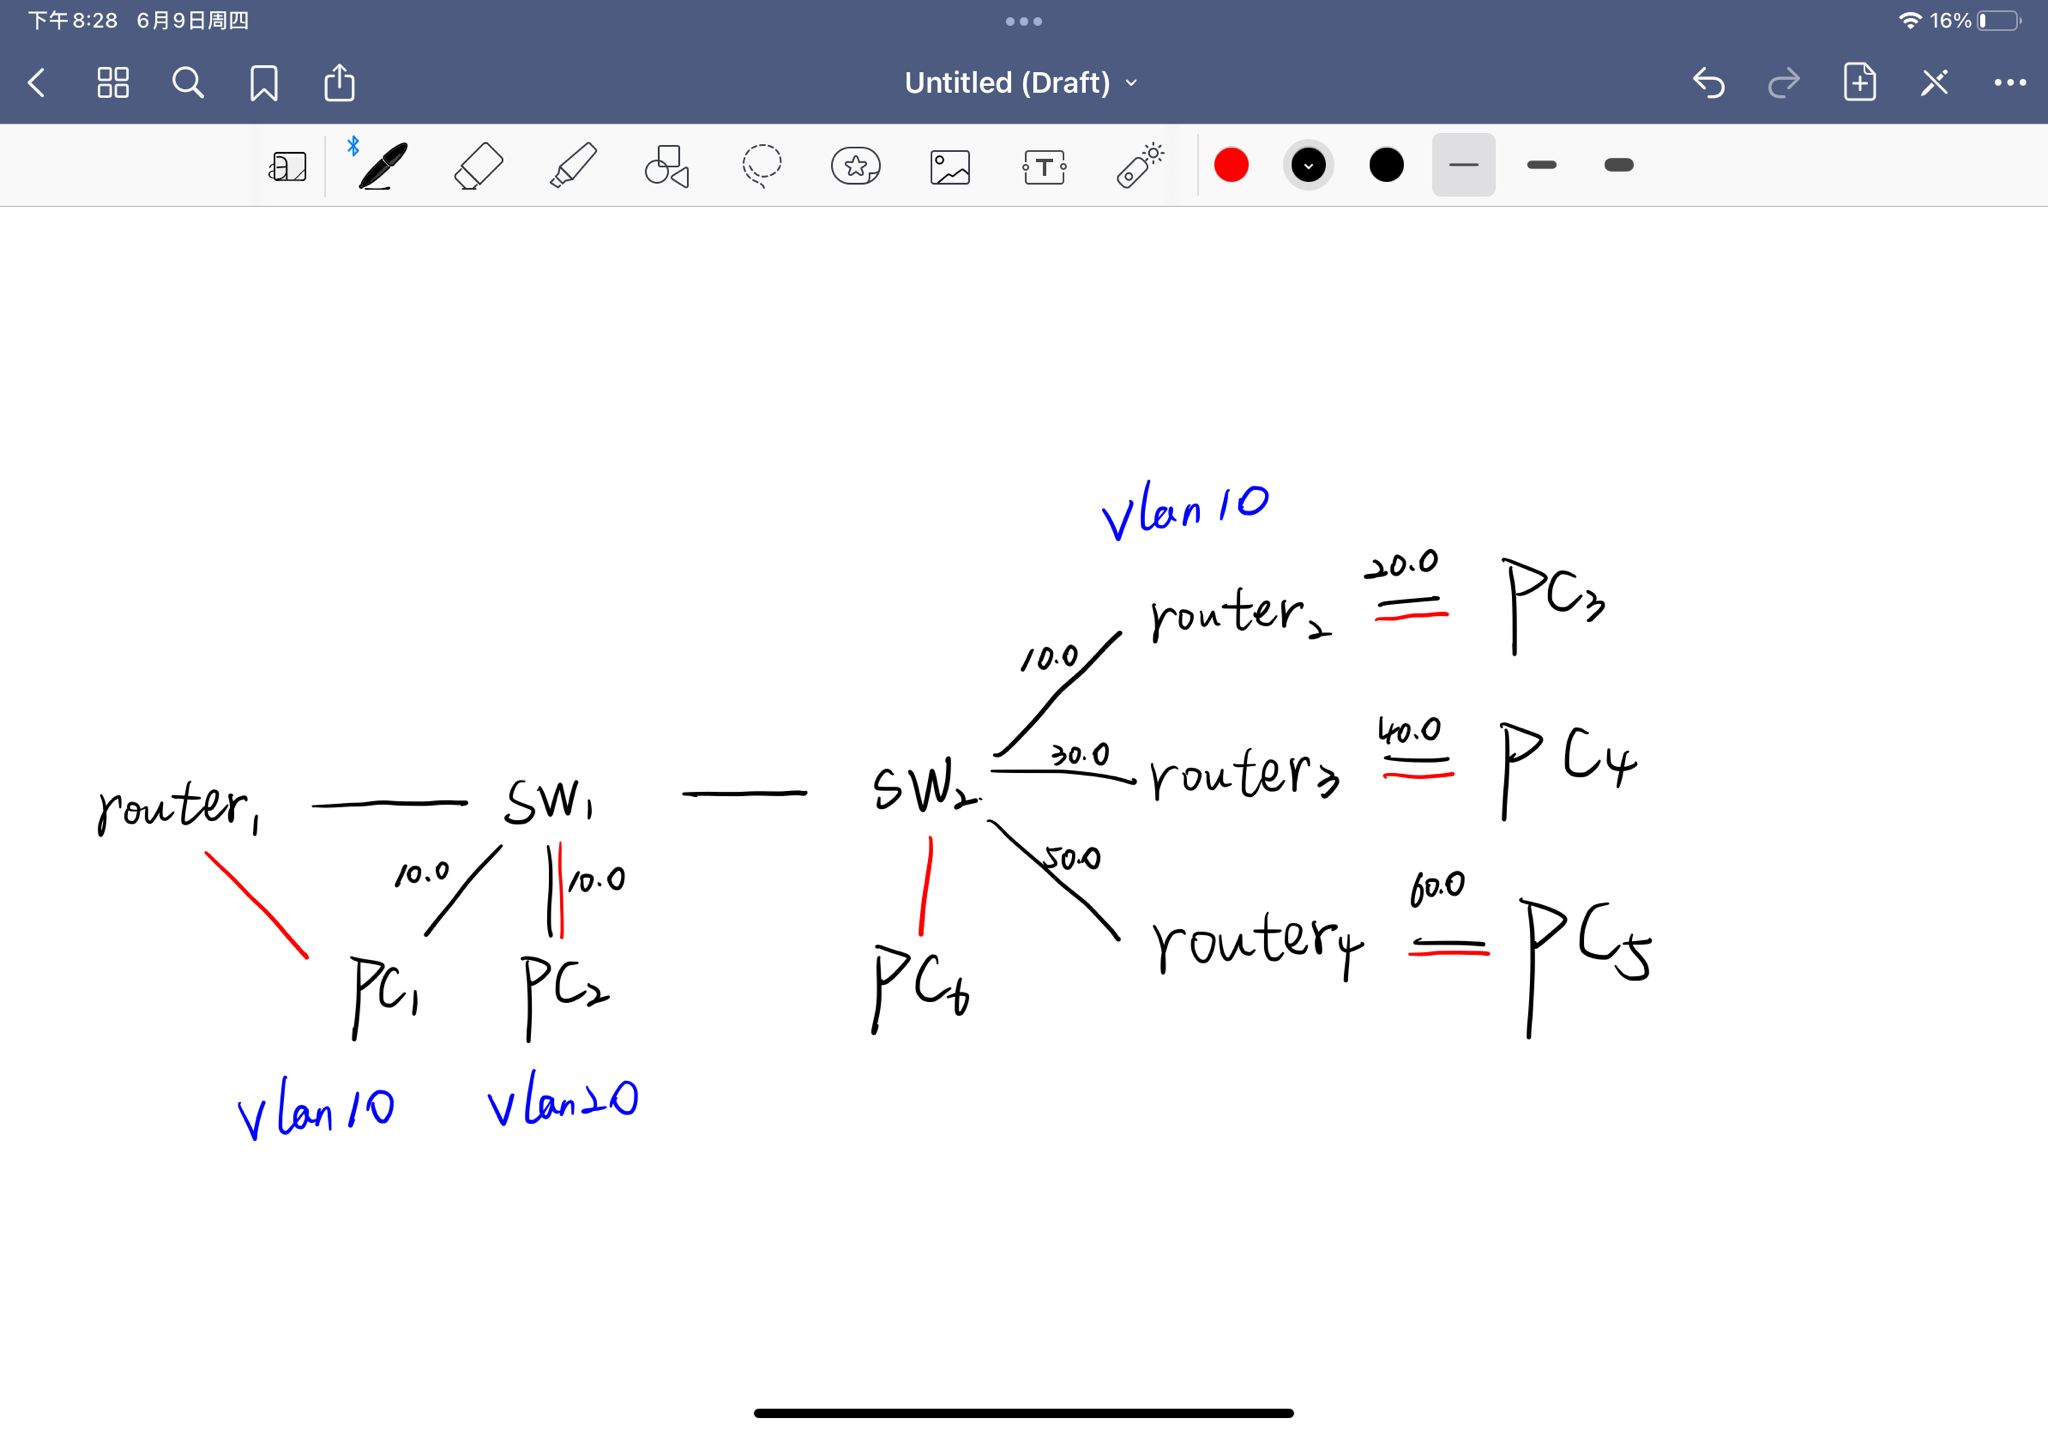 下午8:28 6月9日周四
16%
Untitled (Draft)
T
vlan 10
20.0
router2
PC3
10.0
40.0
30.0
router3
PC4
router1
SW1
SW2
50.0
10.0
10.0
60.0
router4
PC5
PC1
PC2
PC6
vlan 10
vlan 20